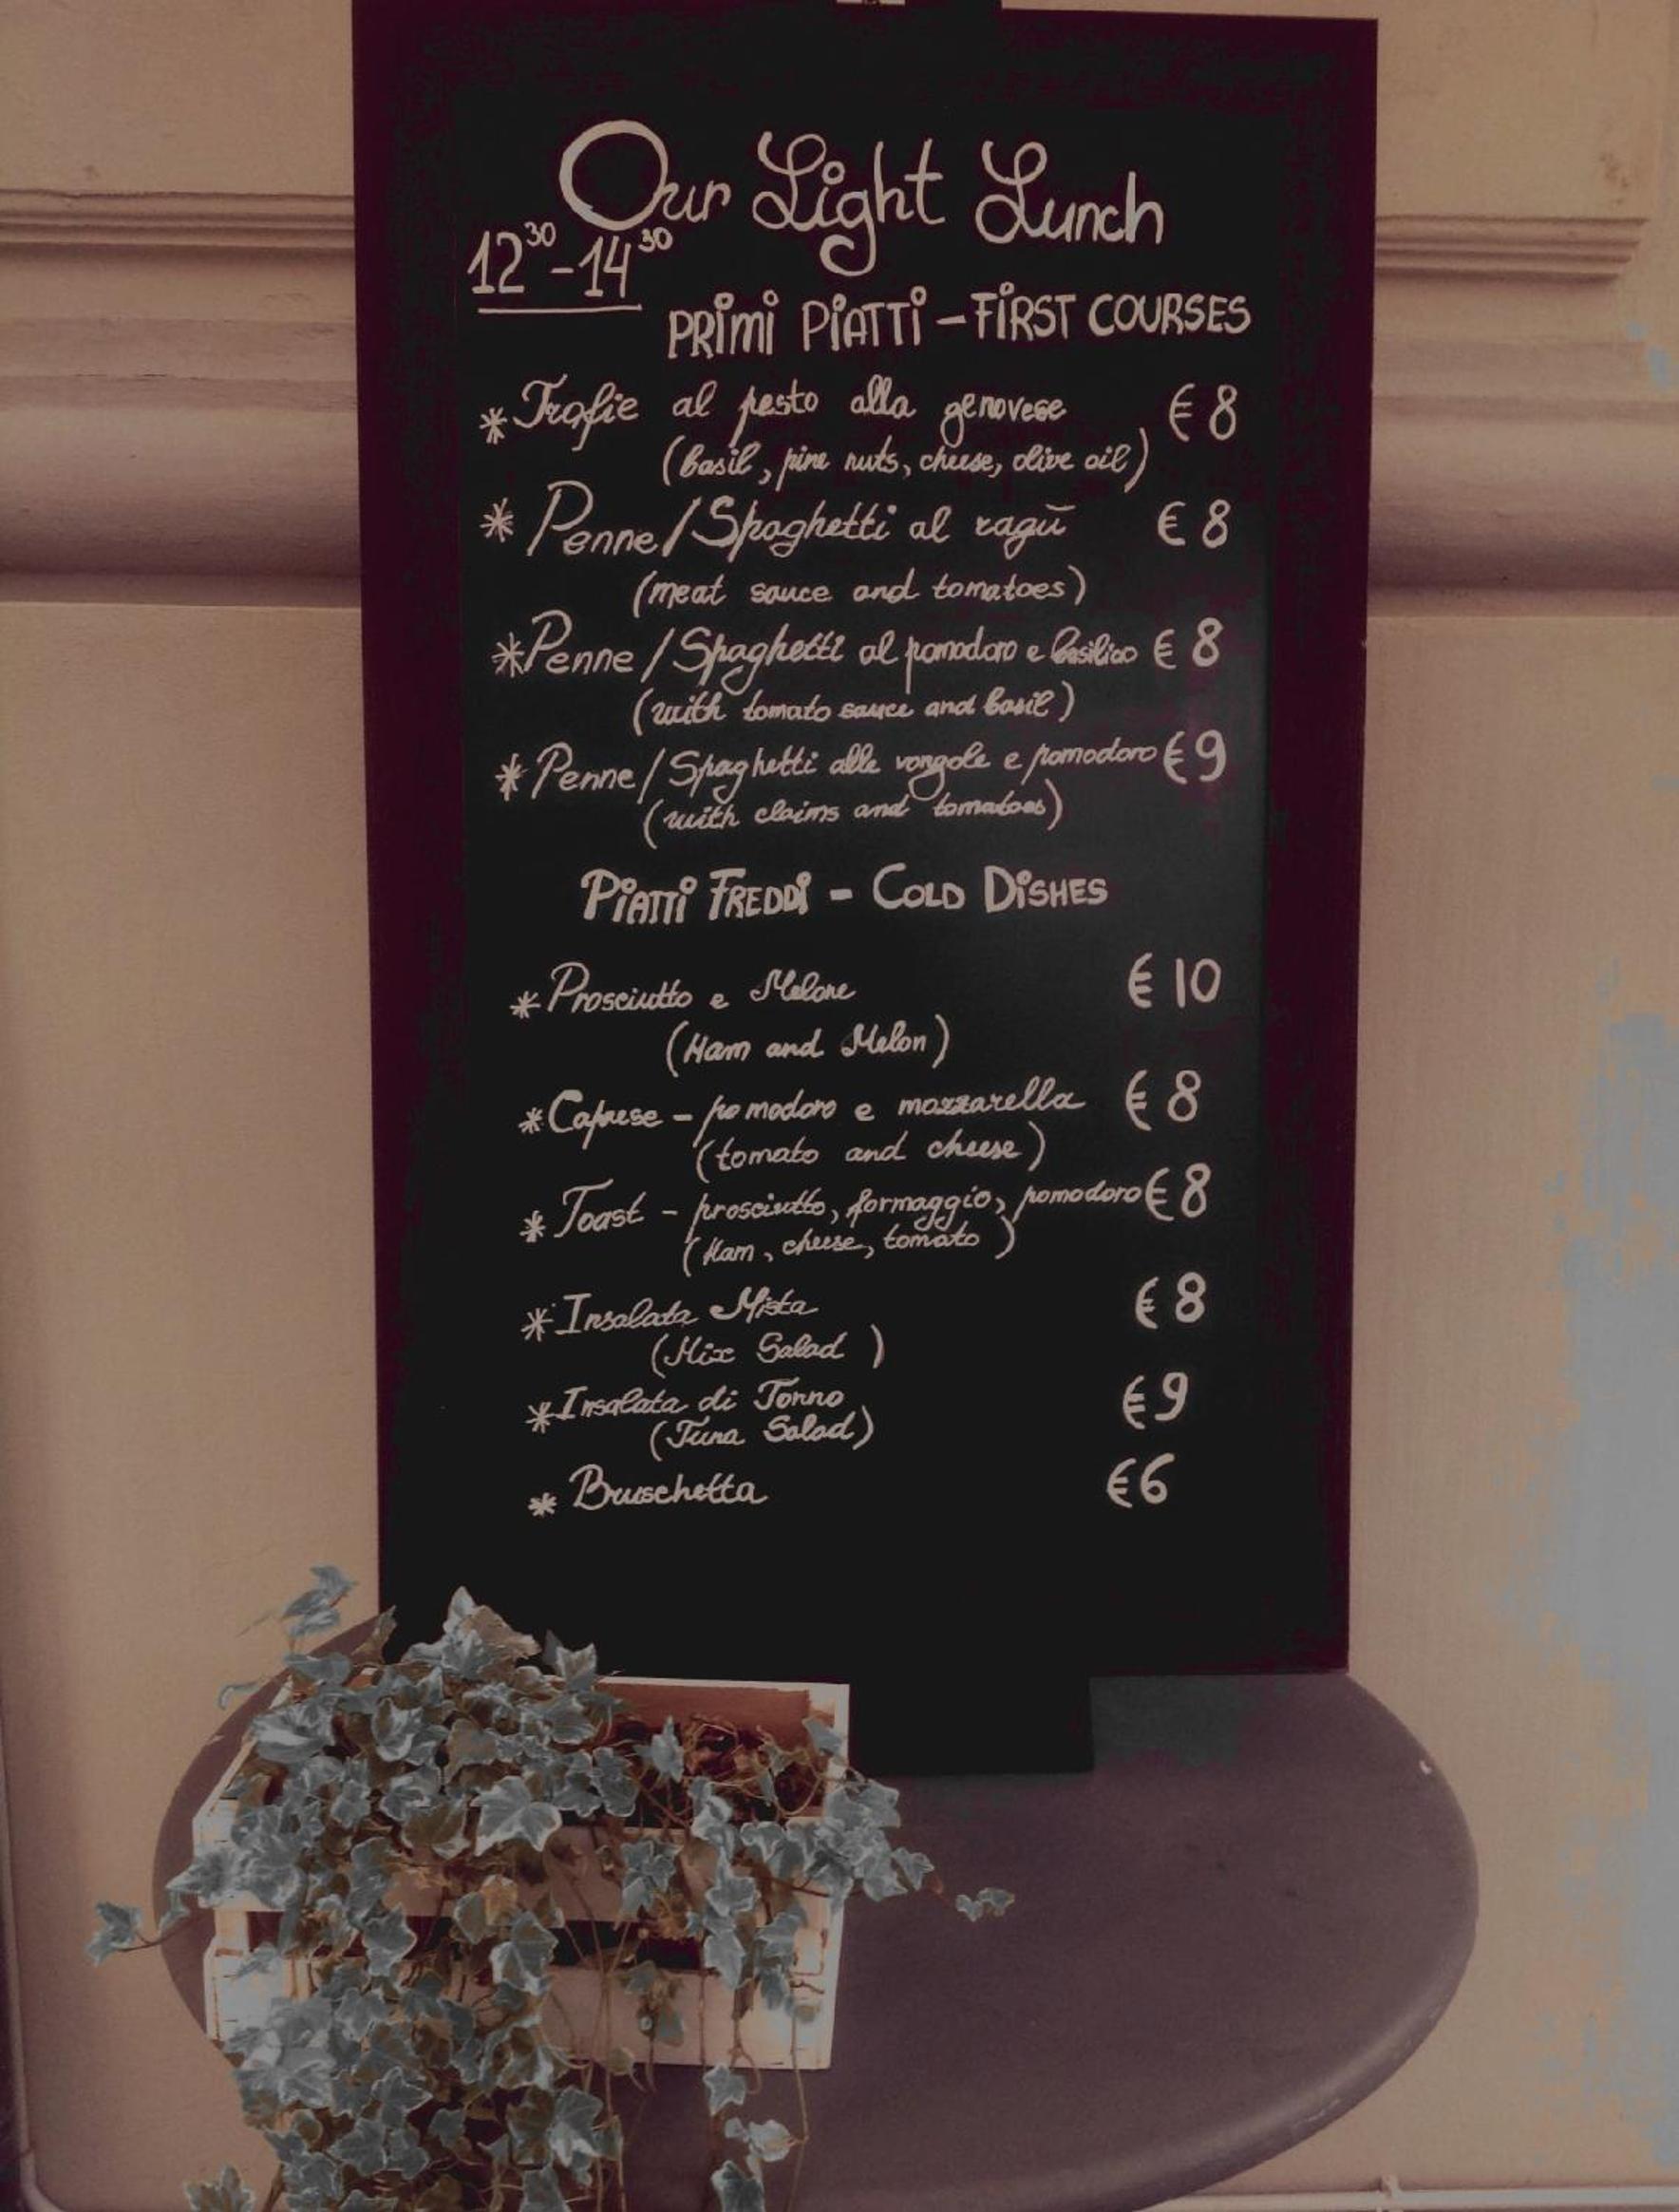 Our Light Lunch
12³⁰-14³⁰
PRiMi PiATTi - FiRST COURSES
* Trofie al pesto alla genovese € 8
(basil, pine nuts, cheese, olive oil)
* Penne/Spaghetti al ragū € 8
(meat sauce and tomatoes)
* Penne/Spaghetti al pomodoro e basilico € 8
(with tomato sauce and basil)
* Penne/Spaghetti alle vongole e pomodoro € 9
(with claims and tomatoes)
PiATTi FREDDi - COLD DiSHES
* Prosciutto e Melone € 10
(Ham and Melon)
* Caprese - pomodoro e mozzarella € 8
(tomato and cheese)
* Toast - prosciutto, formaggio, pomodoro € 8
(Ham, cheese, tomato)
* Insalata Mista € 8
(Mix Salad)
* Insalata di Tonno € 9
(Tuna Salad)
* Bruschetta € 6